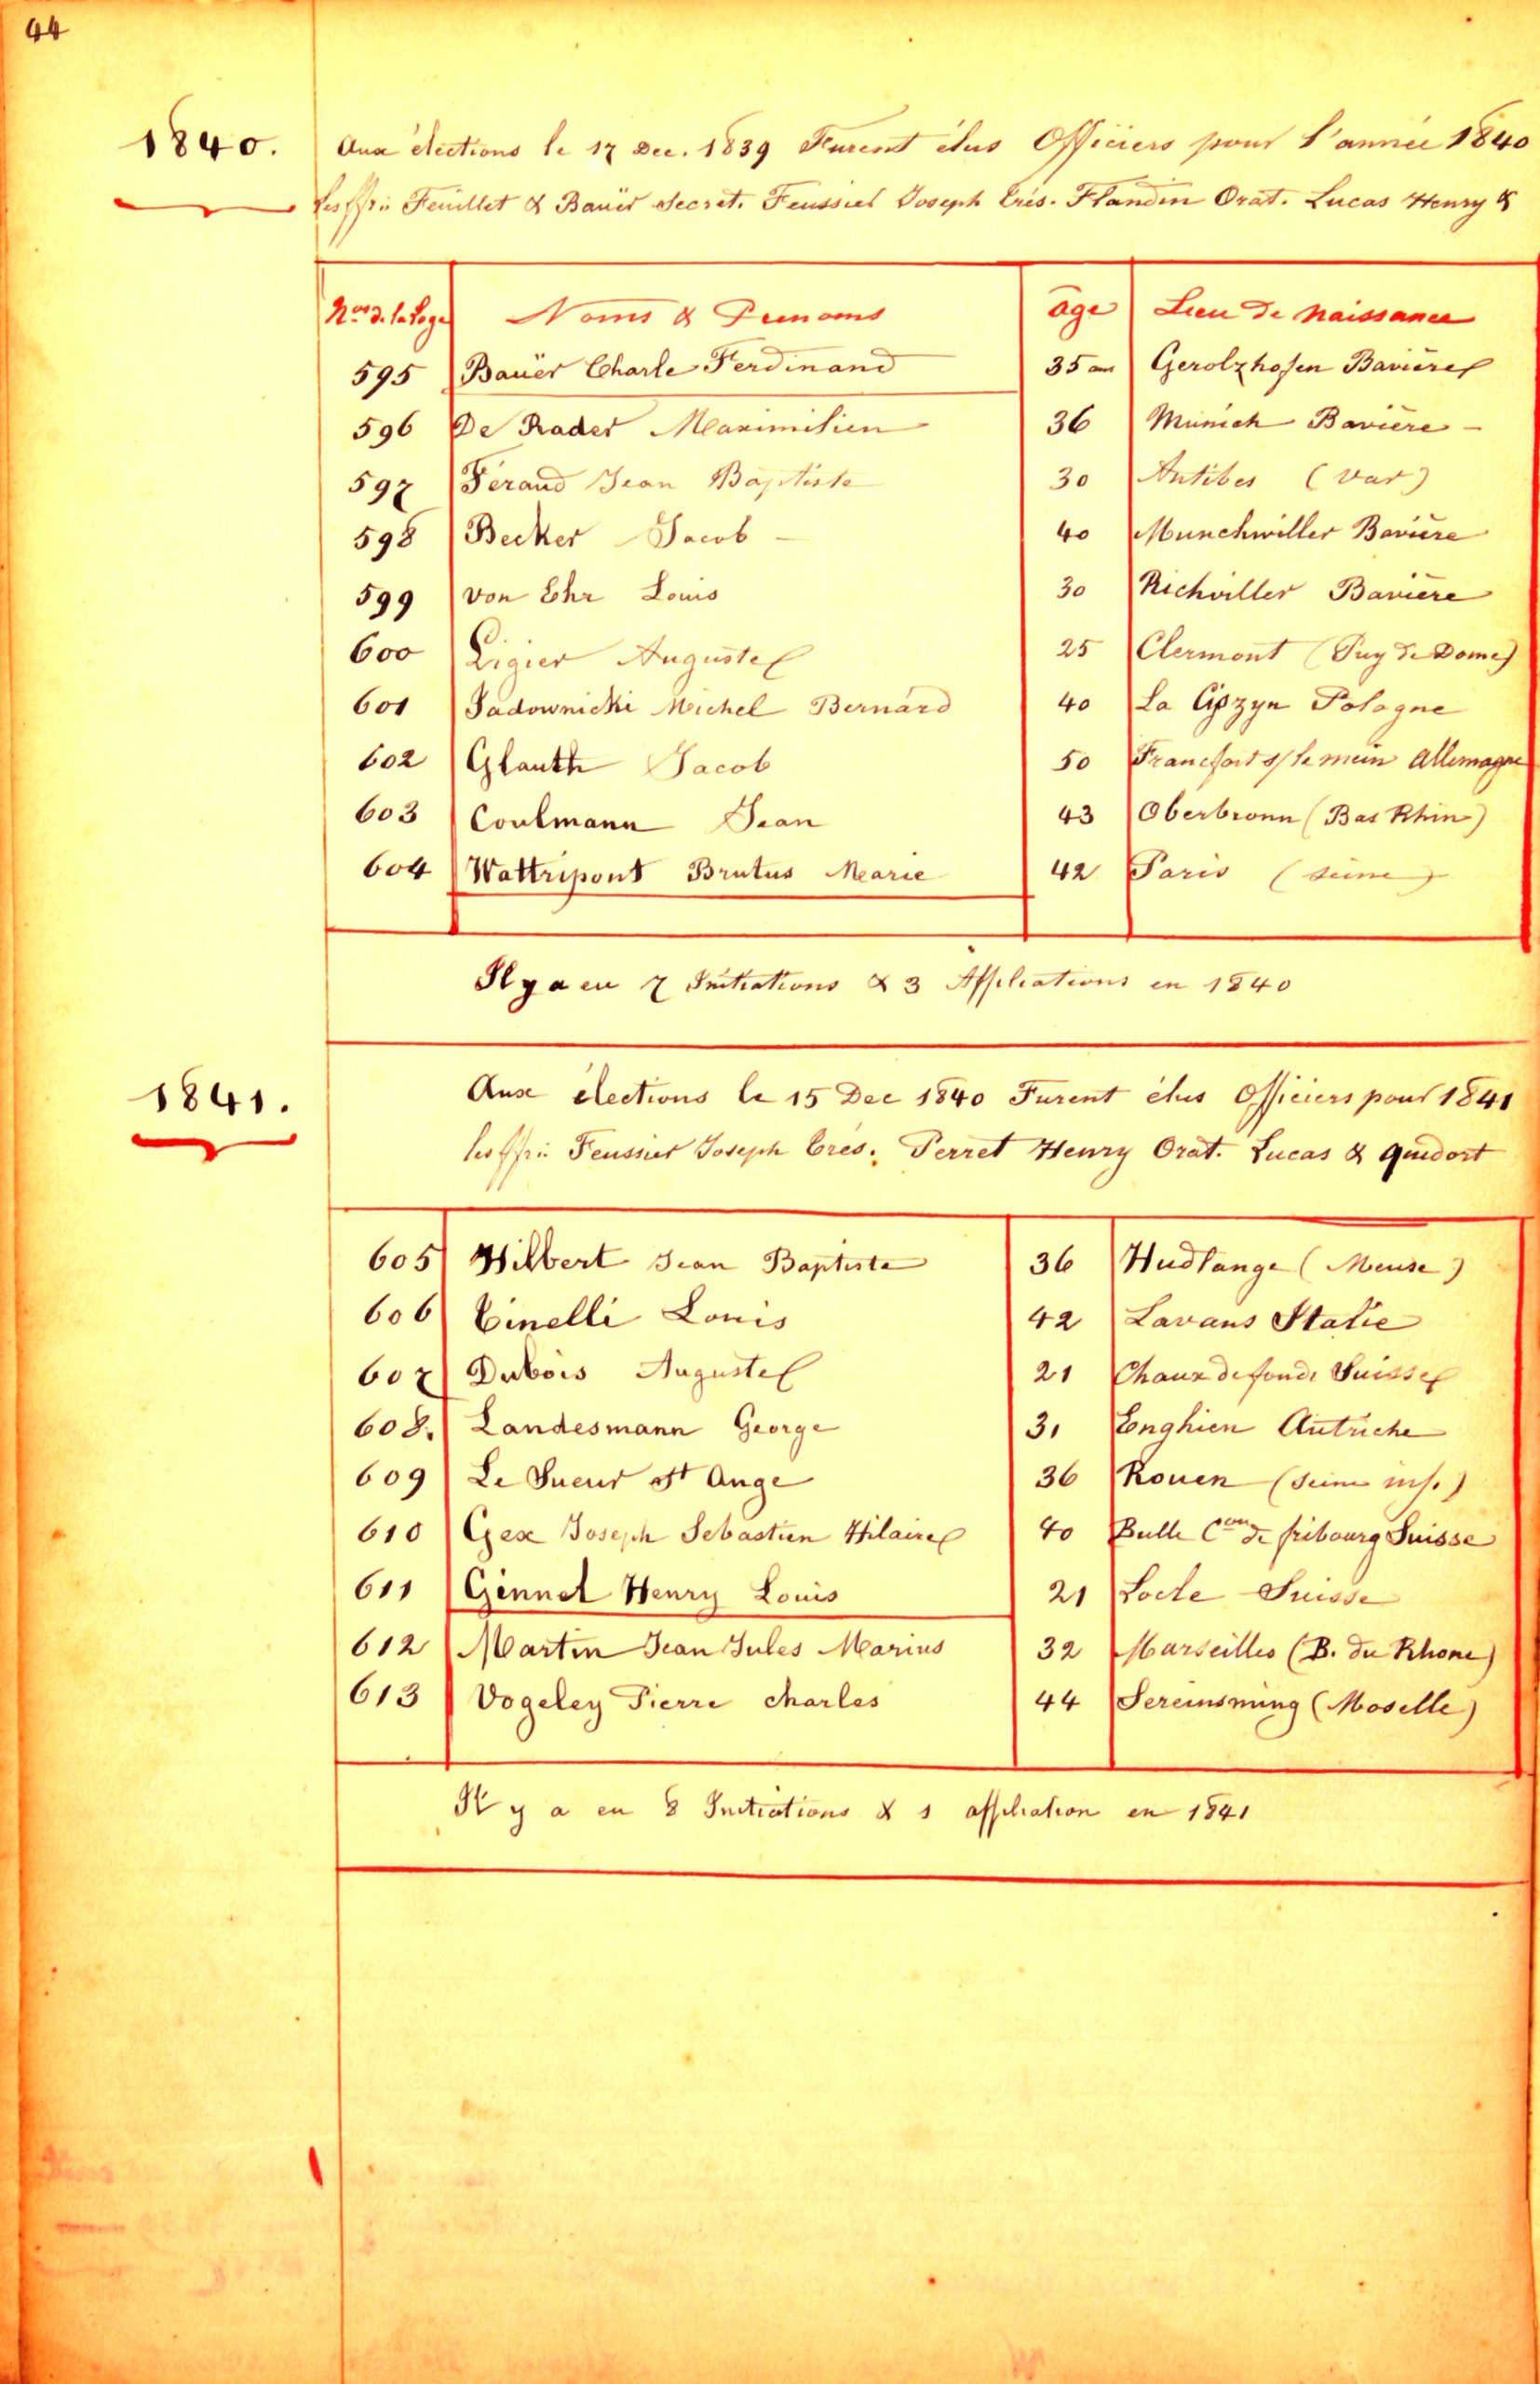 44
1840.
Aux élections le 17 Dec. 1839 Furent élus Officiers pour l'année 1840
les ff∴ Feuillet & Bauër Secret. Feussier Joseph Trés. Flandin Orat. Lucas Henry &
Nos de la Loge Noms & Prenoms âge Lieu de Naissance
595 Bauër Charle Ferdinand 35 ans Gerolzhofen Baviere
596 De Rader Maximilien 36 Munich Baviere
597 Férand Jean Baptiste 30 Antibes (Var)
598 Becker Jacob 40 Munchwiller Baviere
599 Von Ehr Louis 30 Richviller Baviere
600 Ligier Auguste 25 Clermont (Puy de Dome)
601 Sadownicki Michel Bernard 40 La Pologne
602 Glauth Jacob 50 Francfort s/ le mein Allemagne
603 Coulmann Jean 43 Oberbronn (Bas Rhin)
604 Wattripont Brutus Marie 42 Paris (Seine)
Il y a eu 7 Initiations & 3 Affiliations en 1840
1841.
Aux élections le 15 Dec 1840 Furent élus Officiers pour 1841
les ff∴ Feussier Joseph Trés. Perret Henry Orat. Lucas & Quidort
605 Hilbert Jean Baptiste 36 Hudlange (Meuse)
606 Cinelli Louis 42 Lavans Italie
607 Dubois Auguste 21 Chaux de fonds Suisse
608. Landesmann George 31 Enghien Autriche
609 Le Sueur St Ange 36 Rouen (Seine inf.)
610 Gex Joseph Sebastien Hilaire 40 Bulle Con de fribourg Suisse
611 Ginnel Henry Louis 21 Locle Suisse
612 Martin Jean Jules Marius 32 Marseilles (B. du Rhone)
613 Vogeley Pierre Charles 44 (Moselle)
Il y a eu 8 Initiations & 1 affiliation en 1841